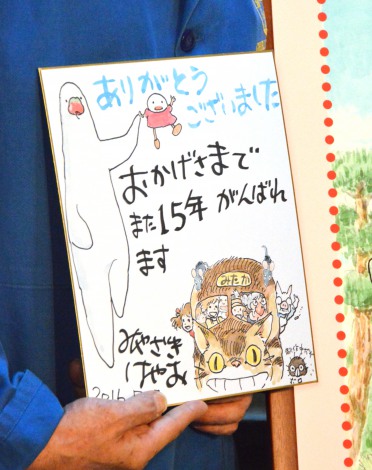 ありがとう
ございました
おかげさまで
また15年 がんばれ
ます
みたか
みやざき
はやお